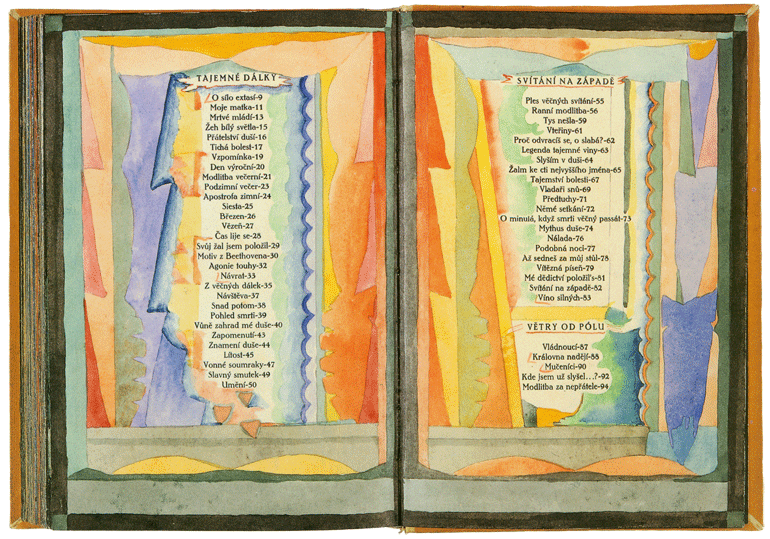 TAJEMNÉ DÁLKY
O sílo extasí-9
Moje matka-11
Mrtvé mládí-13
Žeh bílý světla-15
Přátelství duší-16
Tichá bolest-17
Vzpomínka-19
Den výroční-20
Modlitba večerní-21
Podzimní večer-23
Apostrofa zimní-24
Siesta-25
Březen-26
Vězeň-27
Čas lije se-28
Svůj žal jsem položil-29
Motiv z Beethovena-30
Agonie touhy-32
Návrat-33
Z věčných dálek-35
Návštěva-37
Snad potom-38
Pohled smrti-39
Vůně zahrad mé duše-40
Zapomenutí-43
Znamení duše-44
Lítost-45
Vonné soumraky-47
Slavný smutek-49
Umění-50
SVÍTÁNÍ NA ZÁPADĚ
Ples věčných svítání-55
Ranní modlitba-56
Tys nešla-59
Vteřiny-61
Proč odvracíš se, o slabá?-62
Legenda tajemné viny-63
Slyším v duši-64
Žalm ke cti nejvyššího jména-65
Tajemství bolesti-67
Vladaři snů-69
Předtuchy-71
Němé setkání-72
O minulá, když smrti věčný passát-73
Mythus duše-74
Nálada-76
Podobná noci-77
Až sedneš za můj stůl-78
Vítězná píseň-79
Mé dědictví položil's-81
Svítání na západě-82
Víno silných-83
VĚTRY OD PÓLŮ
Vládnoucí-87
Královna nadějí-88
Mučeníci-90
Kde jsem už slyšel...?-92
Modlitba za nepřátele-94